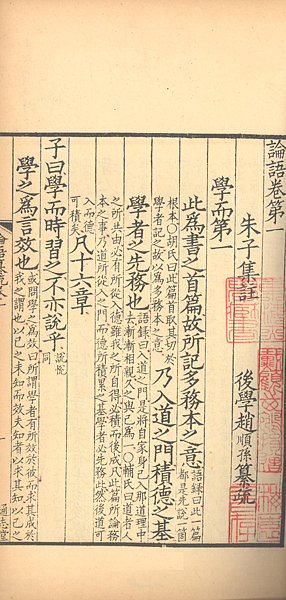 論語卷第一
朱子集註 後學趙順孫纂疏
學而第一
此爲書之首篇故所記多務本之意 語錄曰此一篇
都是先說一箇
根本○胡氏曰此篇首取其切於
學者記之故以爲多務本之意 乃入道之門積德之基
學者之先務也 語錄曰入道之門是將自家身己入那道理中
去漸漸相親久之與己爲一○輔氏曰道者人
之所共由必有所從入德雖我之所自得必積而後成凡此篇所論務
本之事乃道所從入之門而德所積累之基學者必先務此然後道可
入而德
可積矣 凡十六章
子曰學而時習之不亦說乎 說悅
同
學之爲言效也 或問學之爲效何所謂學者有所效於彼而求其成於
我之謂也以己之未知而效夫知者以求其知以己之
通志堂